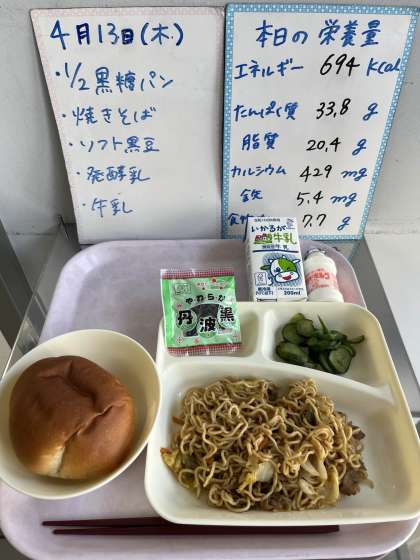 4月13日(木)
・1/2黒糖パン
・焼きそば
・ソフト黒豆
・発酵乳
・牛乳
本日の栄養量
エネルギー 694 Kcal
たんぱく質 33.8 g
脂質 20.4 g
カルシウム 429 mg
鉄 5.4 mg
7.7 g
いかるが
牛乳
200ml
やわらか
丹波黒